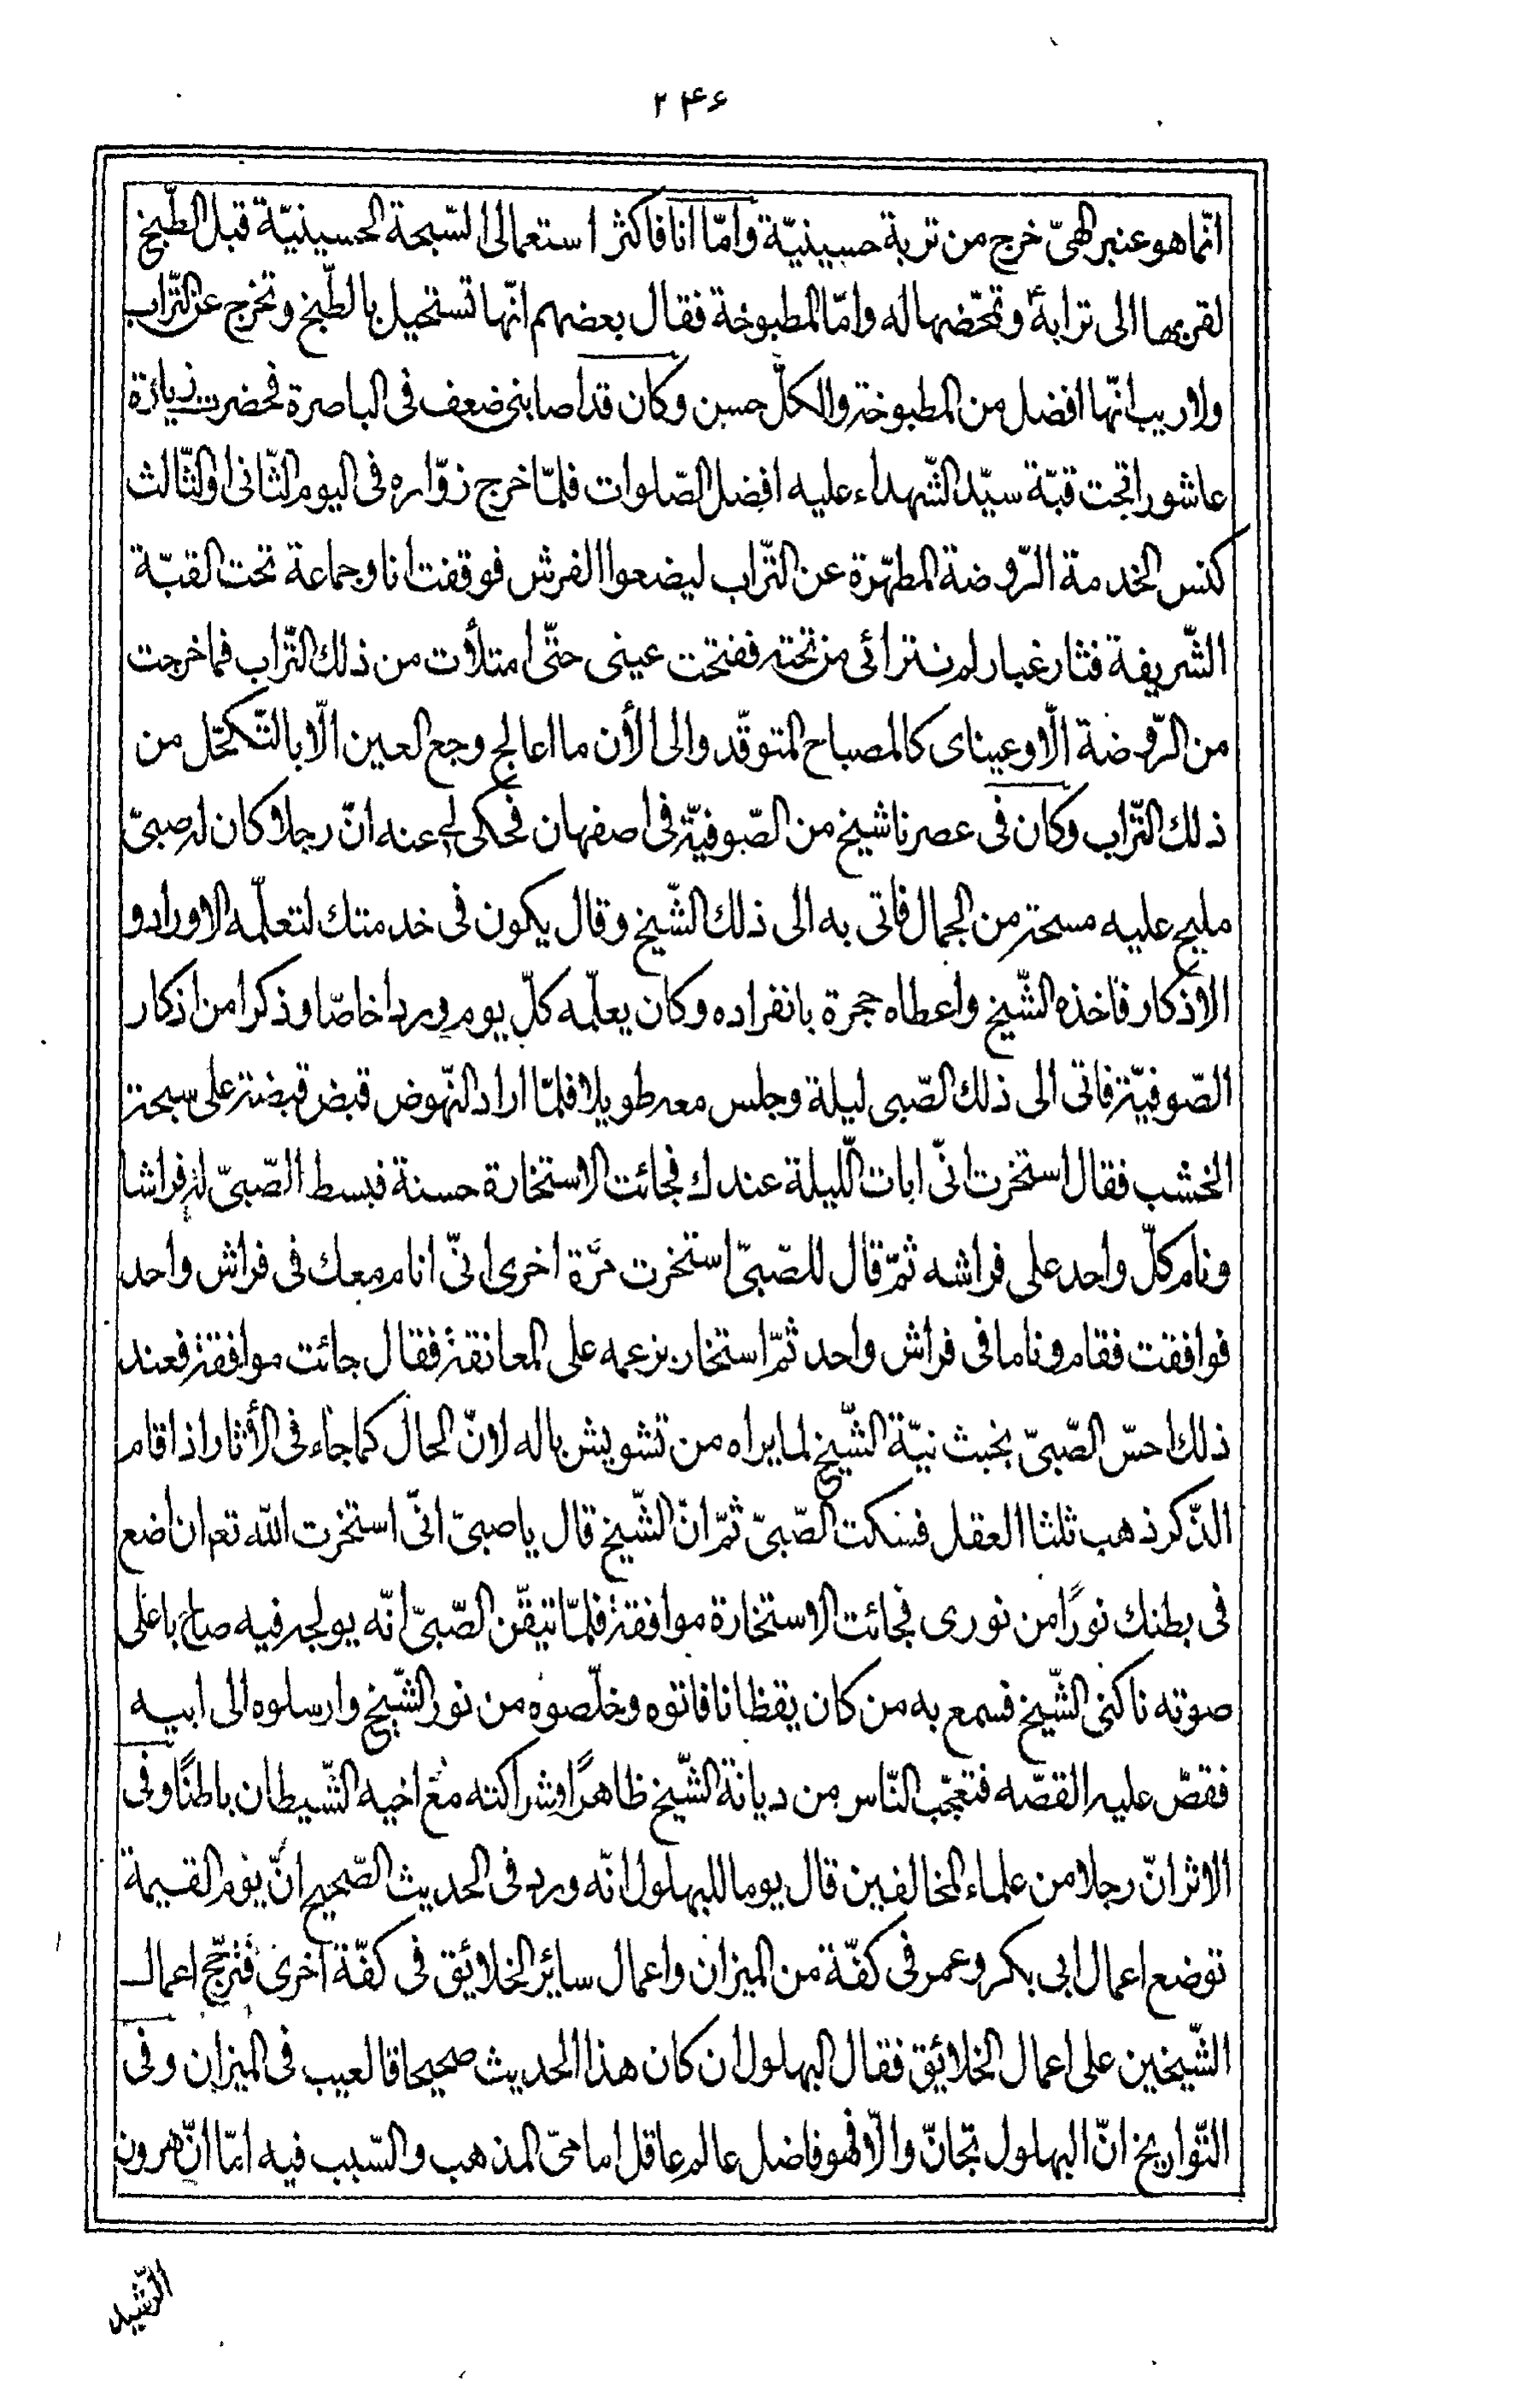 ۲۴۶
انّما هو عنبر الهىّ خرج من تربة حسينيّة وامّا انا فاكثر استعمالى السّبحة الحسينيّة قبل الطّبخ
لقربها الى ترابة وتمحّضها له وامّا المطبوخة فقال بعضهم انّها تستحيل بالطّبخ وتخرج عن التّراب
ولا ريب انّها افضل من المطبوخة والكلّ حسن وكان قد اصابنى ضعف فى الباصرة فحضرت زيارة
عاشورا تحت قبّة سيّد الشّهداء عليه افضل الصّلوات فلمّا خرج زوّاره فى اليوم الثّانى او الثّالث
كنس الخدمة الرّوضة المطهّرة عن التّراب ليضعوا الفرش فوقفت انا وجماعة تحت القبّة
الشّريفة فثار غبار لم نترائى من تحته ففتحت عينى حتّى امتلأت من ذلك التّراب فما خرجت
من الرّوضة الّا وعيناى كالمصباح المتوقّد والى الأن ما اعالج وجع العين الّا بالتّكحّل من
ذلك التّراب وكان فى عصرنا شيخ من الصّوفيّة فى اصفهان فحكى لى عنه انّ رجلا كان له صبىّ
مليح عليه مسحة من الجمال فاتى به الى ذلك الشّيخ وقال يكون فى خدمتك لتعلّمه الاوراد و
الاذكار فاخذه الشّيخ واعطاه حجرة بانفراده وكان يعلّمه كلّ يوم وردا خاصّا وذكرا من اذكار
الصّوفيّة فاتى الى ذلك الصّبى ليلة وجلس معه طويلا فلمّا اراد النّهوض قبض قبضة على سبحة
الخشب فقال استخرت انّى ابات اللّيلة عندك فجائت الاستخارة حسنة فبسط الصّبىّ له فراشا
ونام كلّ واحد على فراشه ثمّ قال للصّبىّ استخرت مرّة اخرى انّى انام معك فى فراش واحد
فوافقت فقام وناما فى فراش واحد ثمّ استخار بزعمه على المعانقة فقال جائت موافقة فعند
ذلك احسّ الصّبىّ بخبث نيّة الشّيخ لما يراه من تشويش باله لانّ الحال كما جاء فى الأثار اذا قام
الذّكر ذهب ثلثا العقل فسكت الصّبىّ ثمّ انّ الشّيخ قال يا صبىّ انّى استخرت اللّه تعه ان اضع
فى بطنك نورًا من نورى فجائت الاستخارة موافقة فلمّا تيقّن الصّبىّ انّه يولجه فيه صاح باعلى
صوته ناكنى الشّيخ فسمع به من كان يقظانا فاتوه وخلّصوه من نور الشّيخ وارسلوه الى ابيه
فقصّ عليه القصّه فتعجّب النّاس من ديانة الشّيخ ظاهرًا وشراكته مع اخيه الشّيطان باطنًا وفى
الاثر انّ رجلا من علماء المخالفين قال يوما للبهلول انّه ورد فى الحديث الصّحيح انّ يوم القيمة
توضع اعمال ابى بكر وعمر فى كفّة من الميزان واعمال ساير الخلائق فى كفّة اخرى فترجّح اعمال
الشّيخين على اعمال الخلائق فقال البهلول ان كان هذا الحديث صحيحا فالعيب فى الميزان وفى
التّواريخ انّ البهلول تجانّ والّا فهو فاضل عالم عاقل امامىّ المذهب والسّبب فيه امّا انّ هرون
الرّشيد